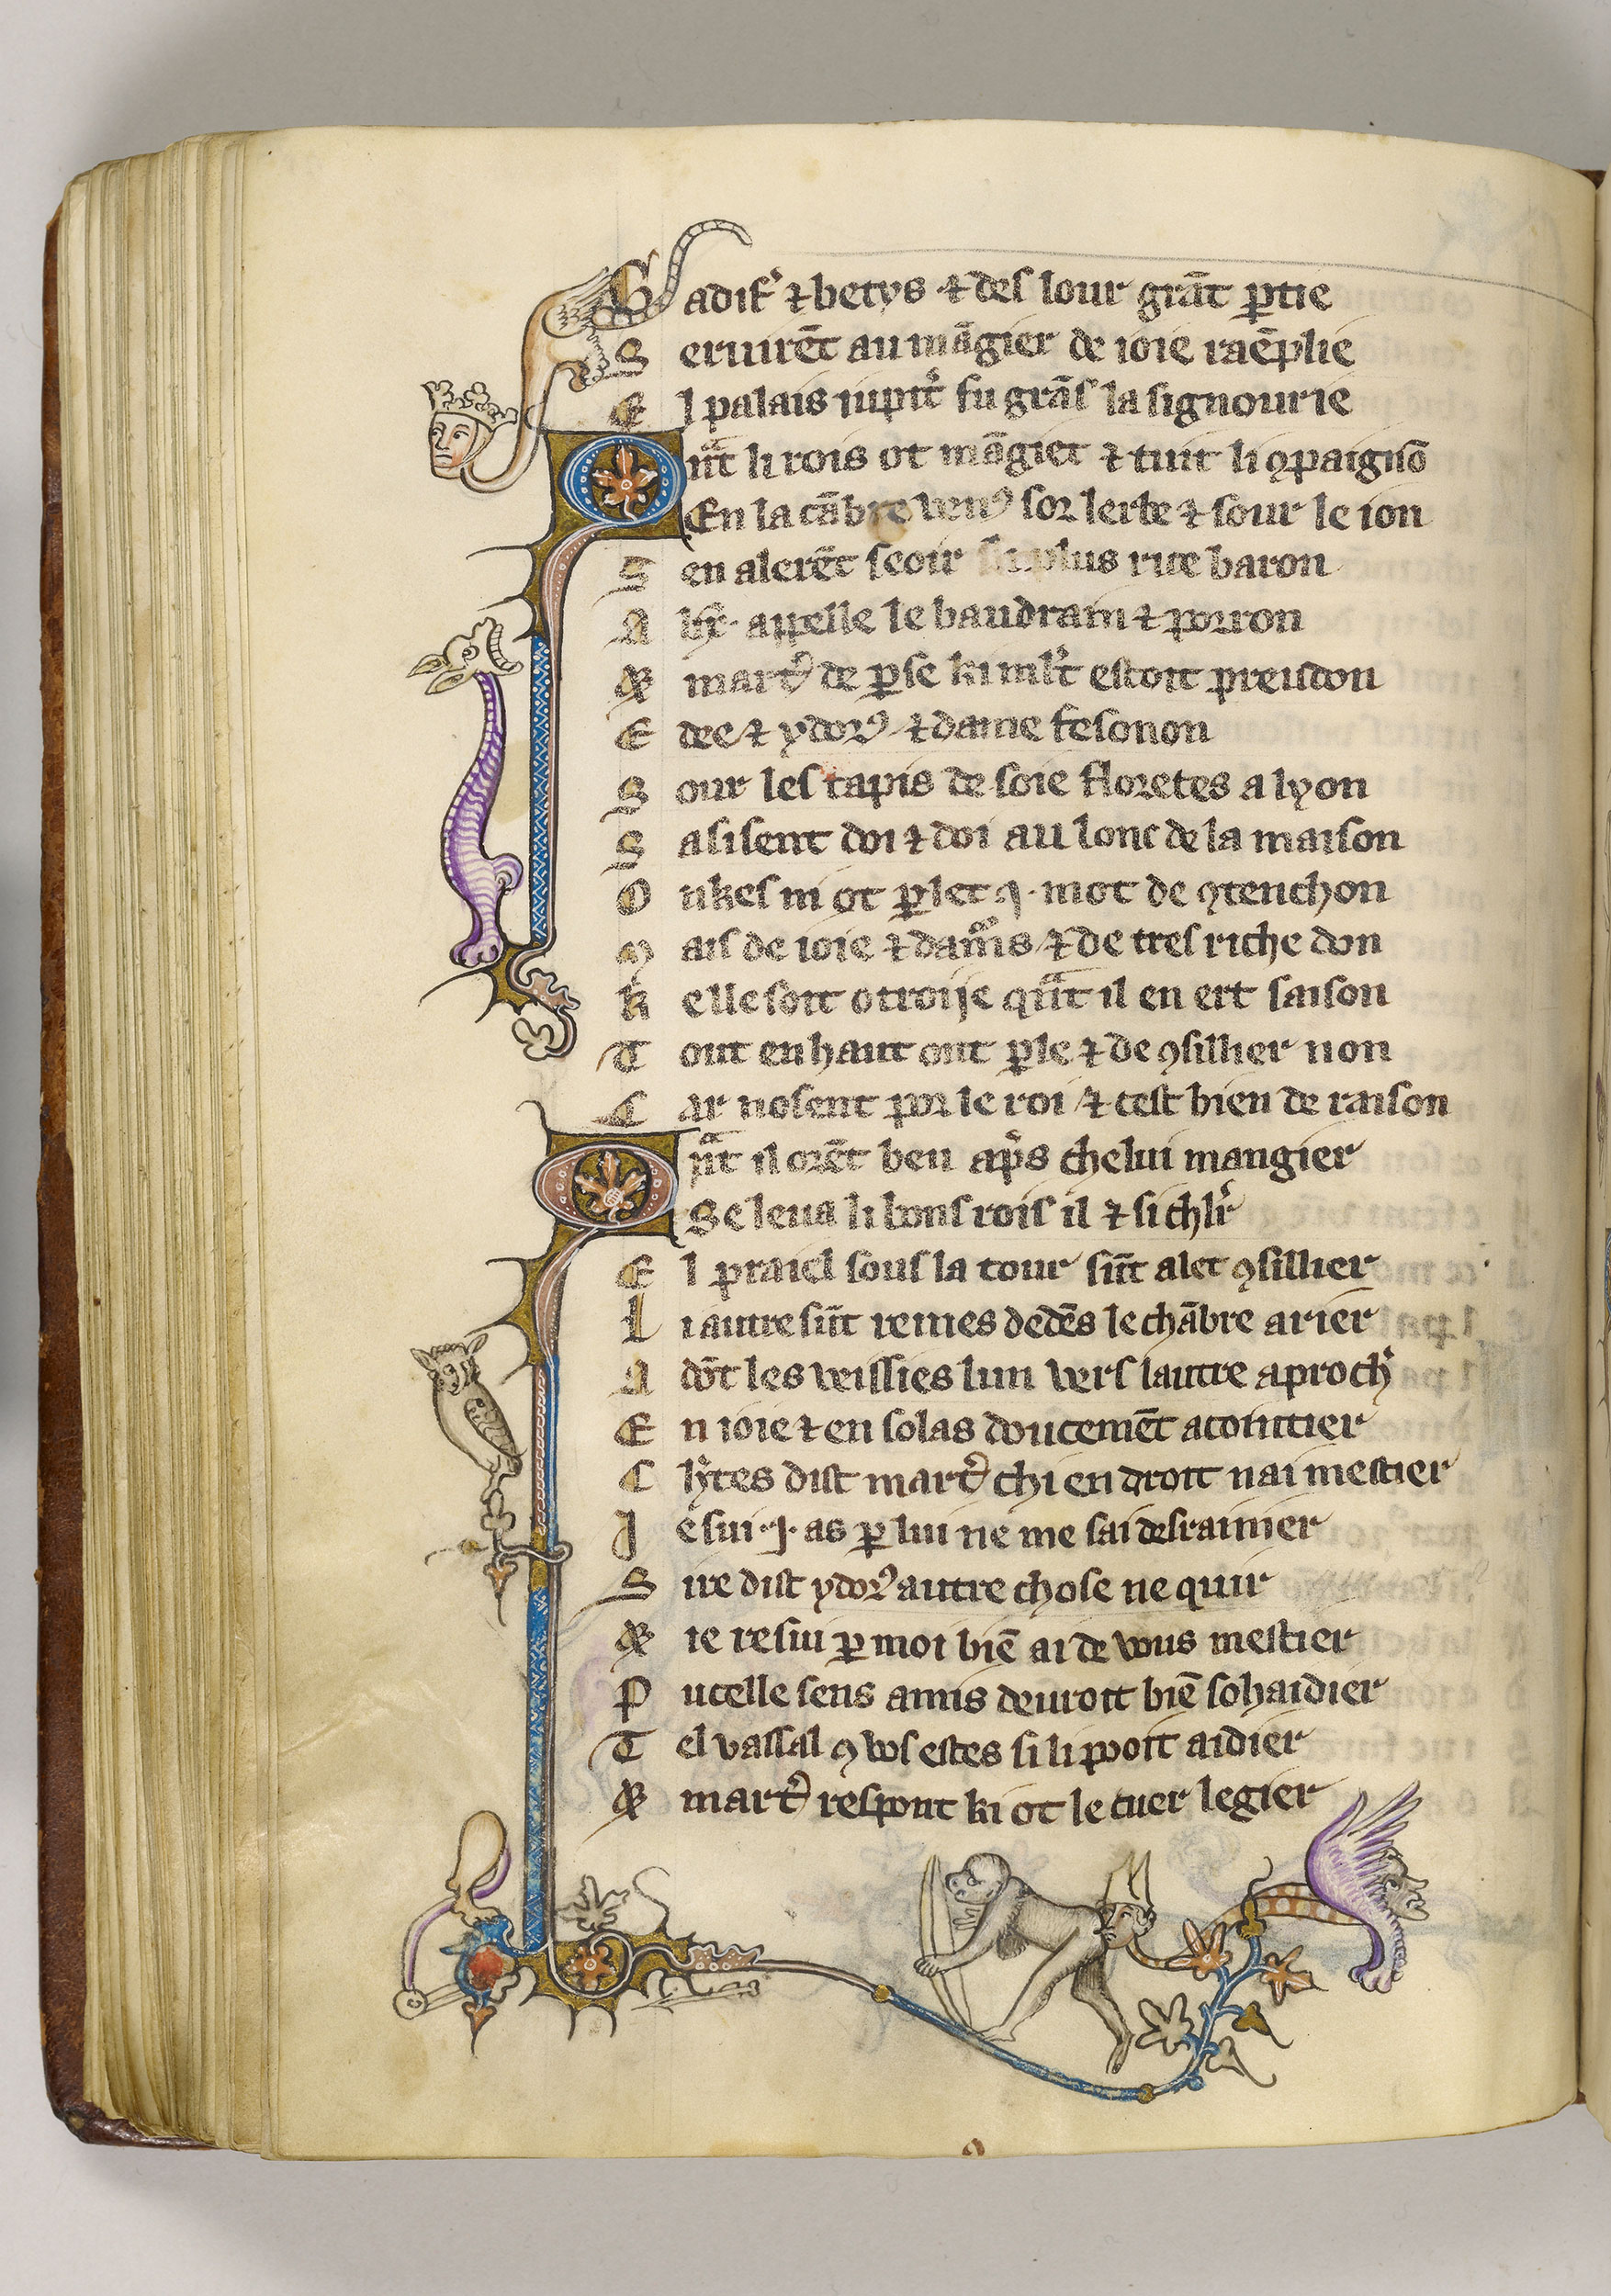 Gadif' ⁊ betys ⁊ des lour grāt ꝑtie
Seruirēt au māgier de ioie raēplie
El palais iupit' fu grās la signourie
Qn̄t li rois ot māgiet ⁊ tuit li ꝯpaignō
En la cābre venꝰ sor lerbe ⁊ sour le ion
Sen alerēt seoir li plus rice baron
A appelle le baudrain ⁊ porron
⁊ martꝰ de ꝑse ki ml't estoit preudon
Edee ⁊ ydorꝰ ⁊ dame fesonon
Sour les tapis de soie floretes a lyon
Sasisent doi ⁊ doi au lonc de la maison
Onkes ni ot ꝑlet .i. mot de ꝯtenchon
Mais de ioie ⁊ damo's ⁊ de tres riche don
Kelle soit otroije qn̄t il en ert saison
Tout en haut ont ꝑle ⁊ de ꝯsillier non
Car nosent por le roi ⁊ cest bien de raison
Qn̄t il orēt beu ap's chelui mangier
Se leua li bons rois il ⁊ si chl'r
El praiel sous la tour sūt alet ꝯsillier
Li autre sūt remes dedēs le chābre arier
A dōt les veissies lun vers lautre aproch'
En ioie ⁊ en solas doucemēt acointier
Ch'tes dist martꝰ chi en droit nai mestier
Je sui .i. as ꝑ lui ne me sai desrainier
Sire dist ydorꝰ autre chose ne quir
⁊ ie resui ꝑ moi biē ai de vous mestier
Pucelle sens amis deuroit biē sohaidier
Tel vassal ꝯ vos estes si li poit aidier
⁊ martꝰ respont ki ot le cuer legier